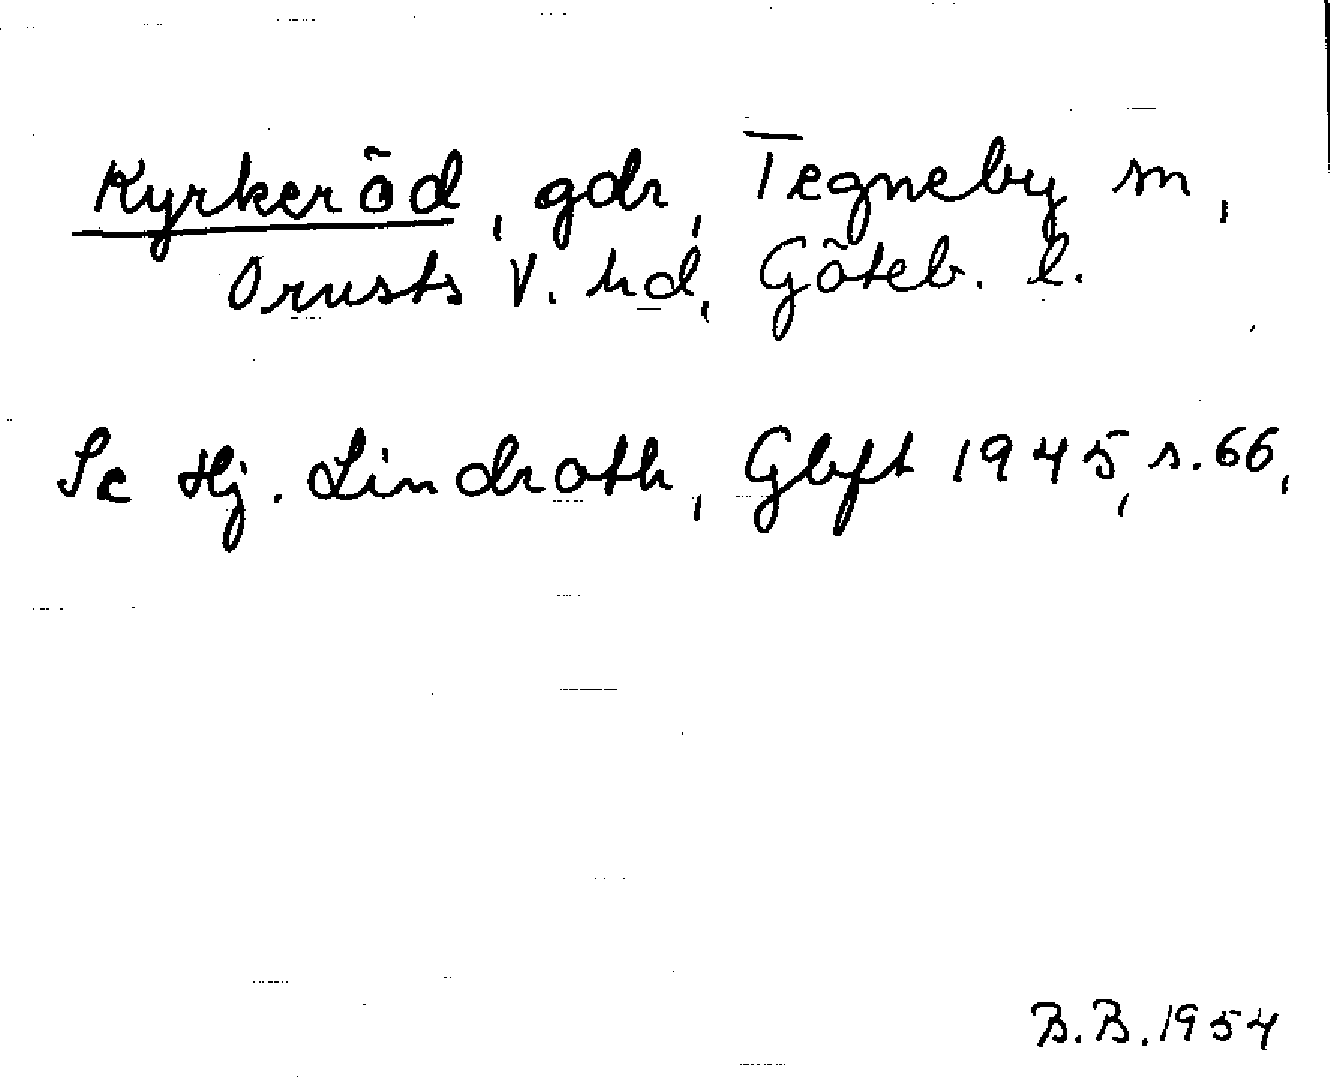 Kyrkeröd, gdr, Tegneby sn,
Orusts V. hd, Göteb. l.
Se Hj. Lindroth, Gbft 1945, s. 66,
B. B. 1954